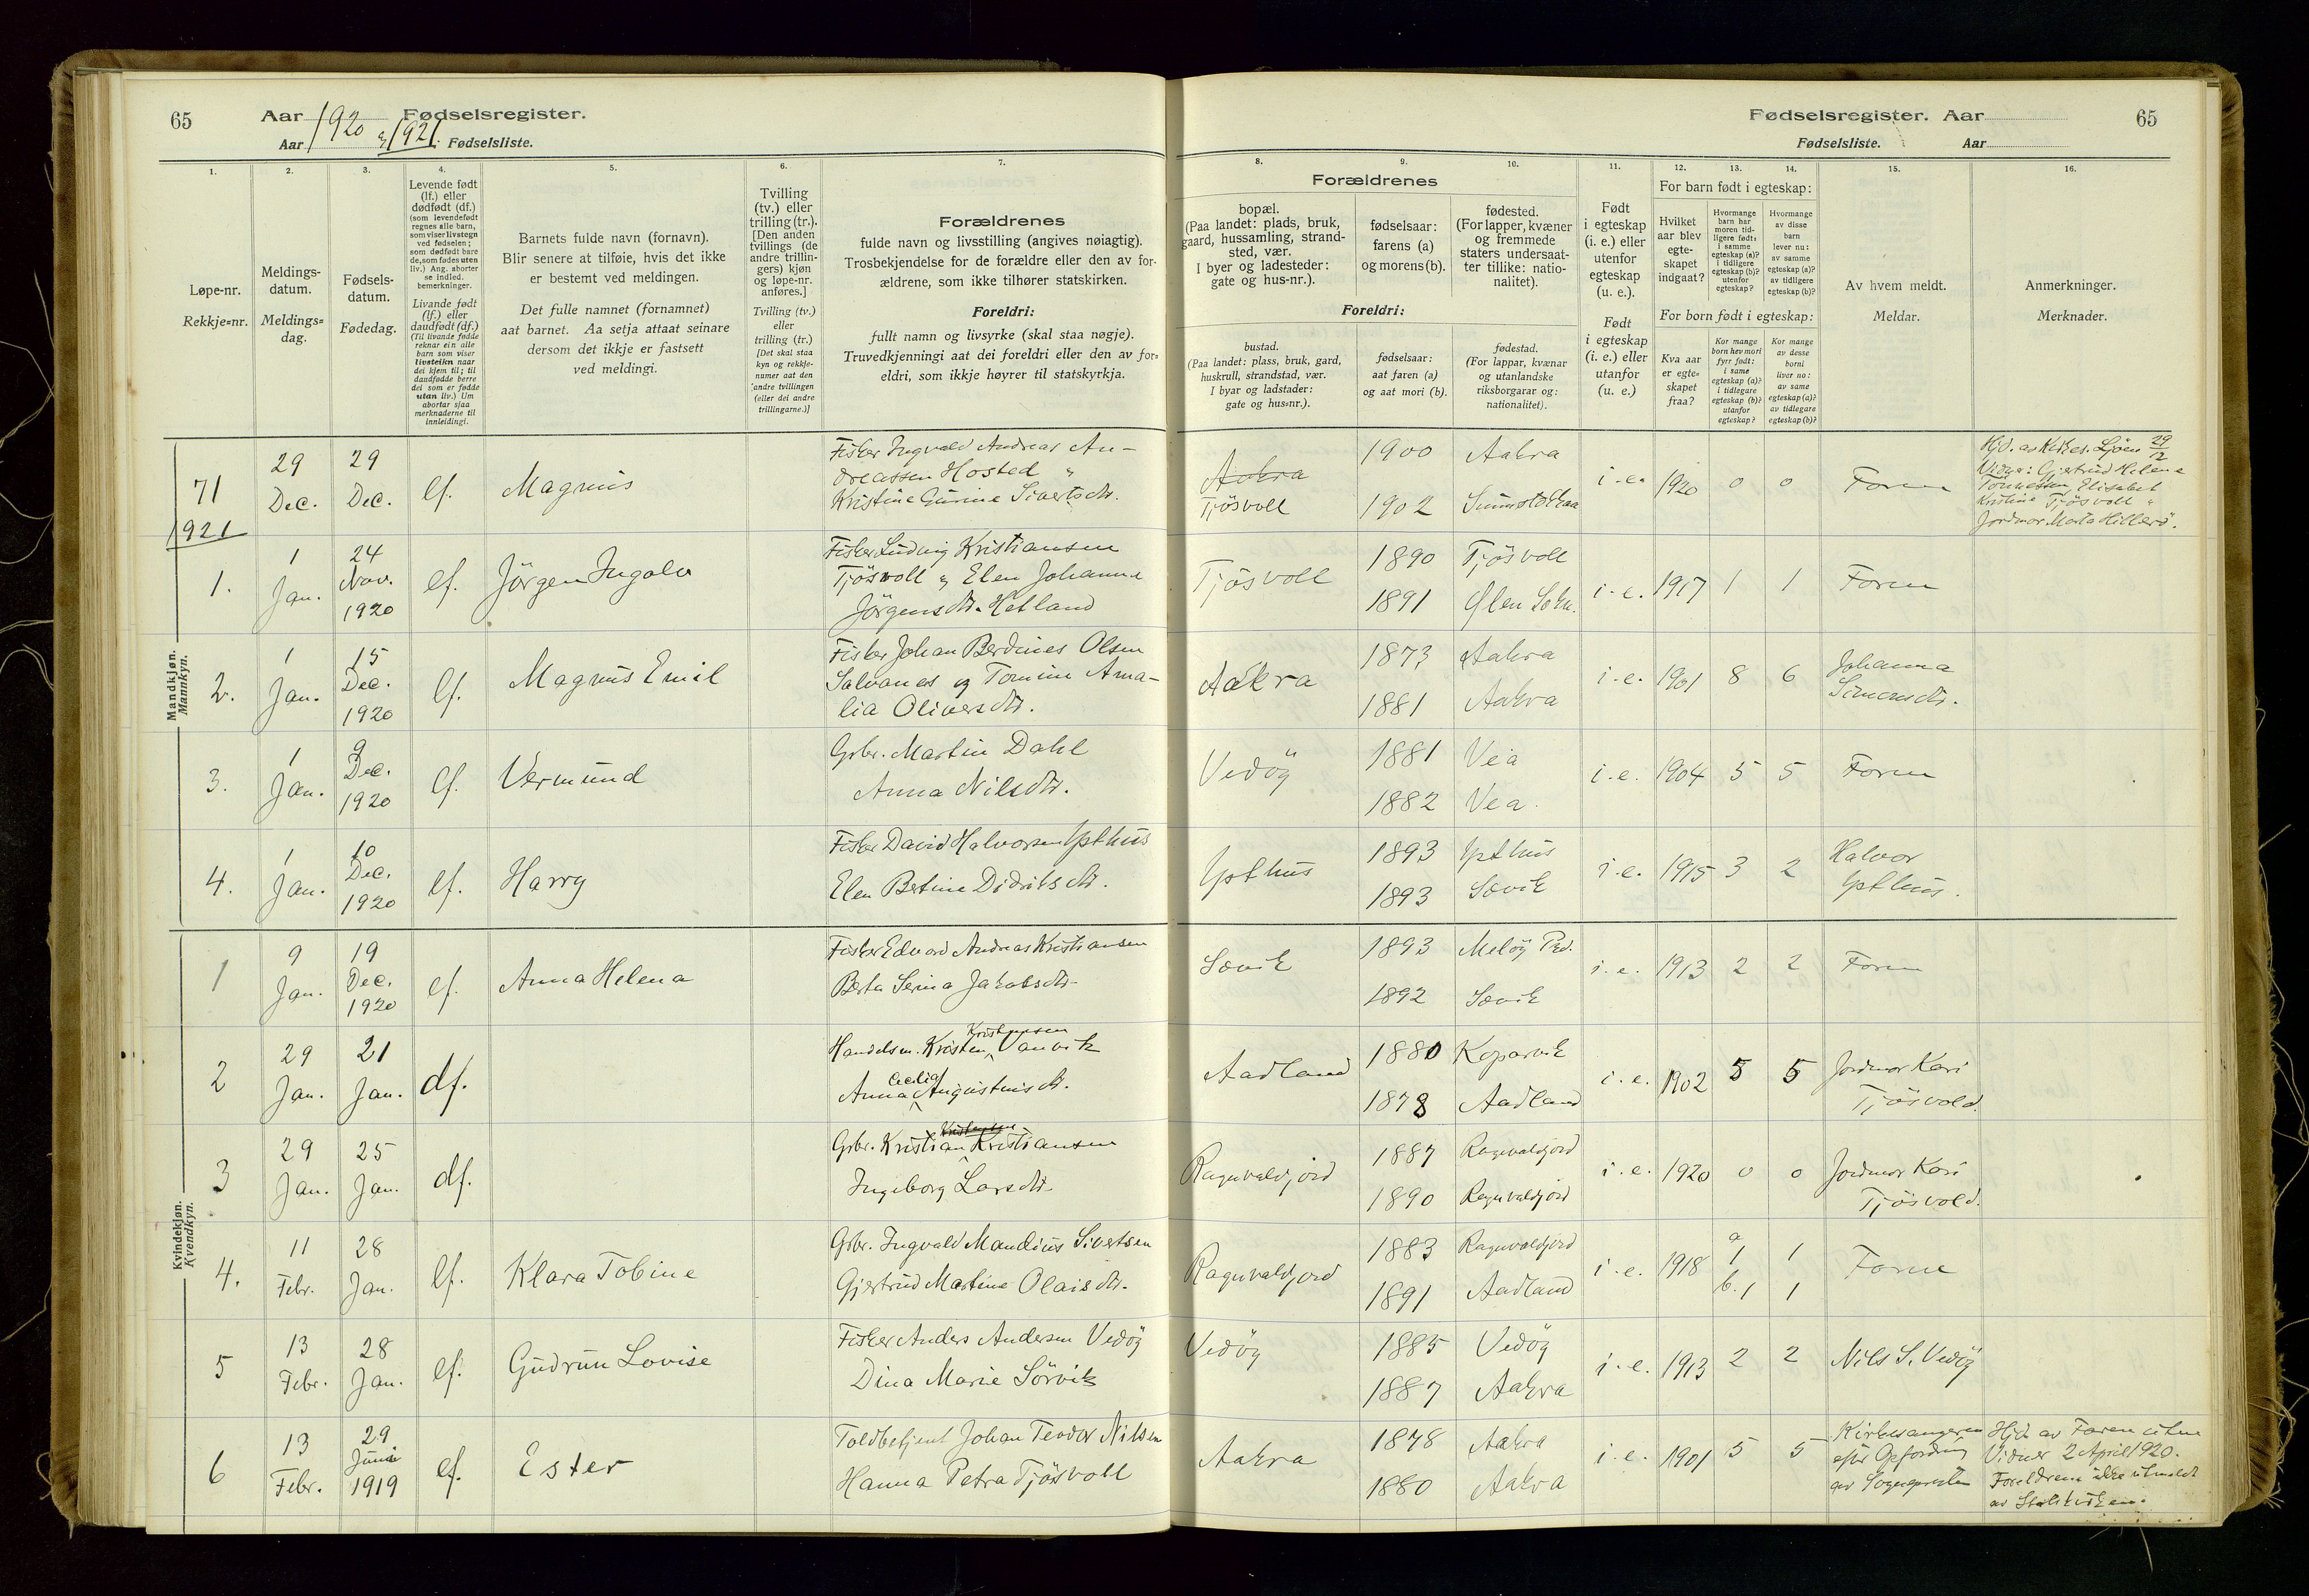 65 Aar 1920 Fødselsregister.
Aar & 1921. Fødselsliste.
Fødselsregister. Aar 65
Fødselsliste. Aar
1. 2. 3. 4. 5. 6. 7. 8. 9. 10. 11. 12. 13. 14. 15. 16.
Løpe-nr.
Rekkje=nr.
Meldings-
datum.
Meldings=
dag.
Fødsels-
datum.
Fødedag.
Levende født
(lf.) eller
dødfødt (df.)
(som levendefødt
regnes alle barn,
som viser livstegn
ved fødselen;
som dødfødt bare
de, som fødes uten
liv.) Ang. aborter
se indled.
bemerkninger.
Livande født
(lf.) eller
daudfødt (df.)
(Til livande fødde
reknar ein alle
barn som viser
livsteikn naar
dei kjem til; til
daudfødde berre
dei som er fødde
utan liv.) Um
abortar sjaa
merknaderne til
innleidingi.
Barnets fulde navn (fornavn).
Blir senere at tilføie, hvis det ikke
er bestemt ved meldingen.
Det fulle namnet (fornamnet)
aat barnet. Aa setja attaat seinare
dersom det ikkje er fastsett
ved meldingi.
Tvilling
(tv.) eller
trilling (tr.).
[Den anden
tvillings (de
andre trillin-
gers) kjøn
og løpe-nr.
anføres.]
Tvilling (tv.)
eller
trilling (tr.)
[Det skal staa
kyn og rekkje-
numer aat den
andre tvillingen
(eller dei andre
trillingarne.)]
Forældrenes
fulde navn og livsstilling (angives nøiagtig).
Trosbekjendelse for de forældre eller den av for-
ældrene, som ikke tilhører statskirken.
Foreldri:
fullt namn og livsyrke (skal staa nøgje).
Truvedkjenningi aat dei foreldri eller den av for-
eldri, som ikkje høyrer til statskyrkja.
Forældrenes
bopæl.
(Paa landet: plads, bruk,
gaard, hussamling, strand-
sted, vær.
I byer og ladesteder:
gate og hus-nr.).
fødselsaar:
farens (a)
og morens (b).
fødested.
(For lapper, kvæner
og fremmede
staters undersaat-
ter tillike: natio-
nalitet).
Foreldri:
bustad.
(Paa landet: plass, bruk, gard,
huskrull, strandstad, vær.
I byar og ladstader:
gate og hus=nr.).
fødselsaar:
aat faren (a)
og aat mori (b).
fødestad.
(For lappar, kvænar
og utanlandske
riksborgarar og:
nationalitet).
Født
i egteskap
(i. e.) eller
utenfor
egteskap
(u. e.).
Født
i egteskap
(i. e.) eller
utanfor
(u. e.)
For barn født i egteskap:
Hvilket
aar blev
egte-
skapet
indgaat?
Hvormange
barn har
moren tid-
ligere født:
i samme
egteskap (a)?
i tidligere
egteskap (b)?
utenfor
egteskap?
Hvormange
av disse
barn
lever nu:
av samme
egteskap (a)?
av tidligere
egteskap (b)?
For born født i egteskap:
Kva aar
er egte=
skapet
fraa?
Kor mange
born hev mori
fyrr født:
i same
egteskap (a)?
i tidlegare
egteskap (b)?
utanfor
egteskap?
Kor mange
av desse
borni
liver no:
av same
egteskap (a)?
av tidlegare
egteskap (b)?
Av hvem meldt.
Meldar.
Anmerkninger.
Merknader.
Mandkjøn.
Mannkyn.
71 29 Dec. 29 Dec. lf. Magnus
Fisker Ingvald Andreas An-
dreassen Hosted "
Kristine Gunne Sivertsdtr.
Aakra
Tjösvoll 1900 Aakra
1902
i. e. 1920 0 0 Faren
Hjd. av Kirkes. Sjöen 29/12
Vidner: Gjertrud Helene
Tönnessen, Elisabet
Kristine Tjösvoll "
Jordmor Marta Hillerö.
1921
1. 1 Jan. 24 Nov. 1920 lf. Jörgen Ingolv
Fisker Ludvig Kristiansen
Tjösvoll & Elen Johanne
Jörgensdtr. Hetland
Tjösvoll 1890 Tjösvoll
1891 Ølen Sokn.
i. e. 1917 1 1 Faren
2. 1 Jan. 15 Dec. 1920 lf. Magnus Emil
Fisker Johan Berdines Olsen
Salvanes og Tomine Ama-
lia Oliversdtr.
Aakra 1873 Aakra
1881 Aakra
i. e. 1901 8 6 Johanna
Simonsdtr.
3. 1 Jan. 9 Dec. 1920 lf. Vermund
Grbr. Martin Dahl
Anna Nilsdtr.
Vedöy 1881 Vea
1882 Vea.
i. e. 1904 5 5 Faren
4. 1 Jan. 10 Dec. 1920 lf. Harry
Fisker David Halvorsen Ypthus
Elen Betine Didriksdtr.
Ypthus 1893 Ypthus
1893 Sævik
i. e. 1915 3 2 Halvor
Ypthus.
Kvindekjøn.
Kvendkyn.
1 9 Jan. 19 Dec. 1920 lf. Anna Helena
Fisker Edvard Andreas Kristiansen
Berta Serina Jakobsdtr.
Sævik 1893 Melöy
1892 Sævik
i. e. 1913 2 2 Faren
2 29 Jan. 21 Jan. df.
Handelsm. Kristen Kristensen Vanvik
Anna Cecilia Augustinisdtr.
Aadland 1880 Kopervik
1878 Aadland
i. e. 1902 5 5 Jordmor Kari
Tjösvold.
3 29 Jan. 25 Jan. df.
Grbr. Kristian Kristiansen
Ingeborg Larsdtr.
Ragnvaldjord 1887 Ragnvaldjord
1890 Ragnvaldjord
i. e. 1920 0 0 Jordmor Kari
Tjösvold.
4. 11 Febr. 28 Jan. lf. Klara Tobine
Grbr. Ingvald Mandius Sivertsen
Gjertrud Martine Olaisdtr.
Ragnvaldjord 1883 Ragnvaldjord
1891 Aadland
i. e. 1918 a 1 1
b. 1 1 Farne
5 13 Febr. 28 Jan. lf. Gudrun Lovise
Fisker Anders Andersen Vedöy
Dina Marie Sörvik
Vedöy 1885 Vedöy
1887 Aakra
i. e. 1913 2 2 Nils S. Vedöy
6 13 Febr. 29 Juni 1919 lf. Ester
Toldbetjent Johan Teodor Nilsen
Hanna Petra Tjösvoll
Aakra 1878 Aakra
1880 Aakra
i. e. 1901 5 5 Kirkesangeren
efter Opfordring
av Sognepresten
Hjd. av Faren uten
Vidner 2 April 1920.
Foreldrene ikke utmeldt
av Statskirken.